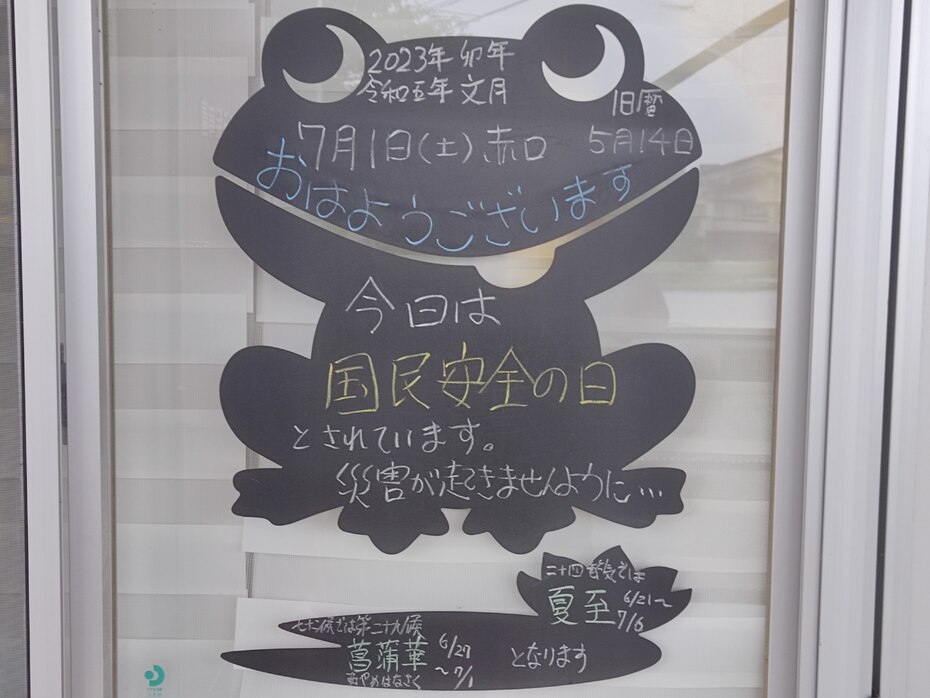 2023年 卯年
令和五年 文月
旧暦
7月1日(土)赤口 5月14日
おはようございます
今日は
国民安全の日
とされています。
災害が起きませんように…
二十四節気では
夏至 6/21〜7/6
七十二候では第二十九候
菖蒲華 6/27〜7/1
あやめはなさく
となります